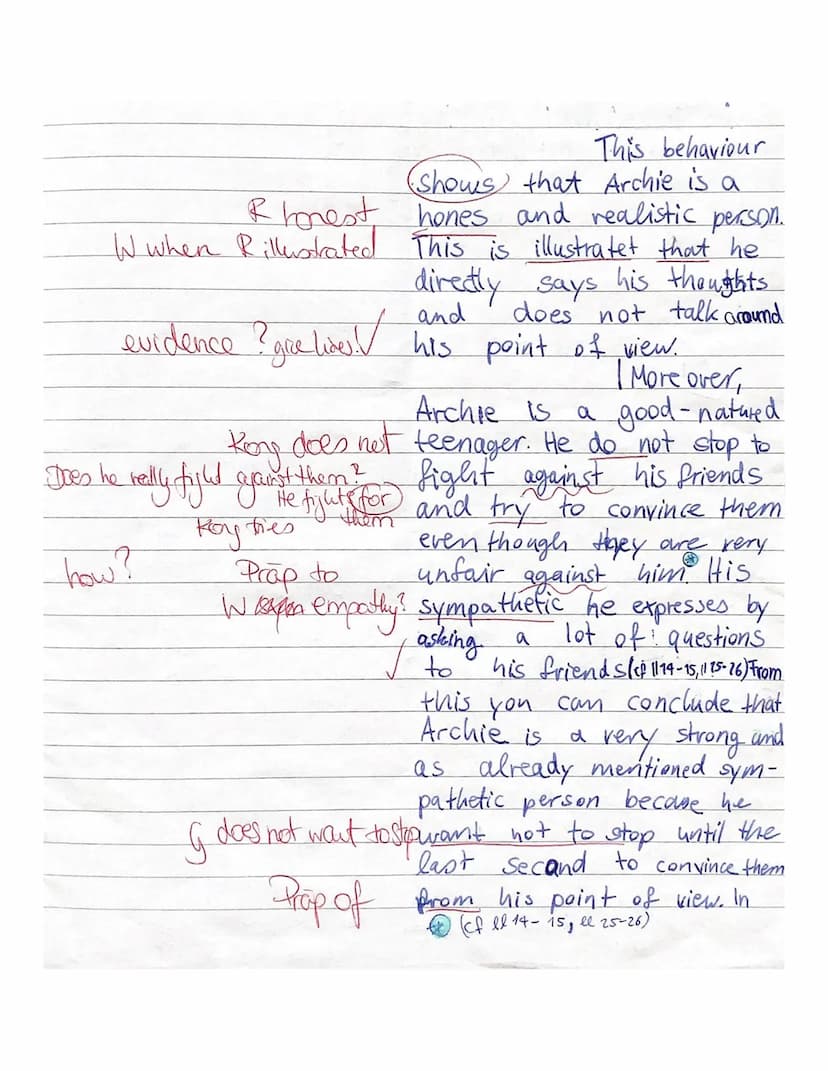 This behaviour
shows that Archie is a
R honest hones and realistic person.
W when R illustrated This is illustratet that he
directly says his thoughts
and does not talk around
evidence? give lines! √ his point of view.
| Moreover,
Archie is a good-natured
Kong does not teenager. He do not stop to
Does he really fight against them? fight against his friends
He fights for them and try to convince them
Kong tries even though they are very
how? Präp to unfair against him. His
W empathy? sympathetic he expresses by
asking a lot of questions
√ to his friends (cf ll 14-15, ll 25-26) From
this you can conclude that
Archie is a very strong and
as already mentioned sym-
pathetic person because he
G does not want to stop want not to stop until the
last second to convince them
Präp of from his point of view. In
* (cf ll 14-15, ll 25-26)